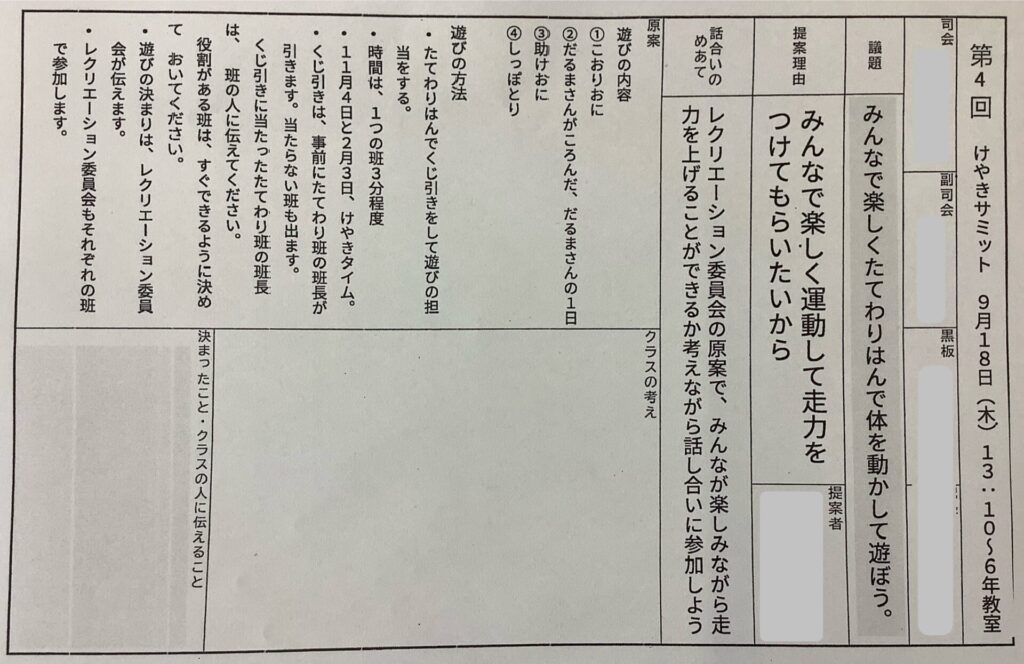 第4回 けやきサミット 9月18日（木）13：10～6年教室
司会
副司会
黒板
議題
みんなで楽しくたてわりはんで体を動かして遊ぼう。
提案理由
みんなで楽しく運動して走力を
つけてもらいたいから
提案者
話合いの
めあて
レクリエーション委員会の原案で、みんなが楽しみながら走
力を上げることができるか考えながら話し合いに参加しよう
原案
遊びの内容
①こおりおに
②だるまさんがころんだ、だるまさんの１日
③助けおに
④しっぽとり
遊びの方法
・たてわりはんでくじ引きをして遊びの担
当をする。
・時間は、１つの班３分程度
・１１月４日と２月３日、けやきタイム。
・くじ引きは、事前にたてわり班の班長が
引きます。当たらない班も出ます。
くじ引きに当たったたてわり班の班長
は、 班の人に伝えてください。
役割がある班は、すぐできるように決め
て おいてください。
・遊びの決まりは、レクリエーション委員
会が伝えます。
・レクリエーション委員会もそれぞれの班
で参加します。
クラスの考え
決まったこと・クラスの人に伝えること